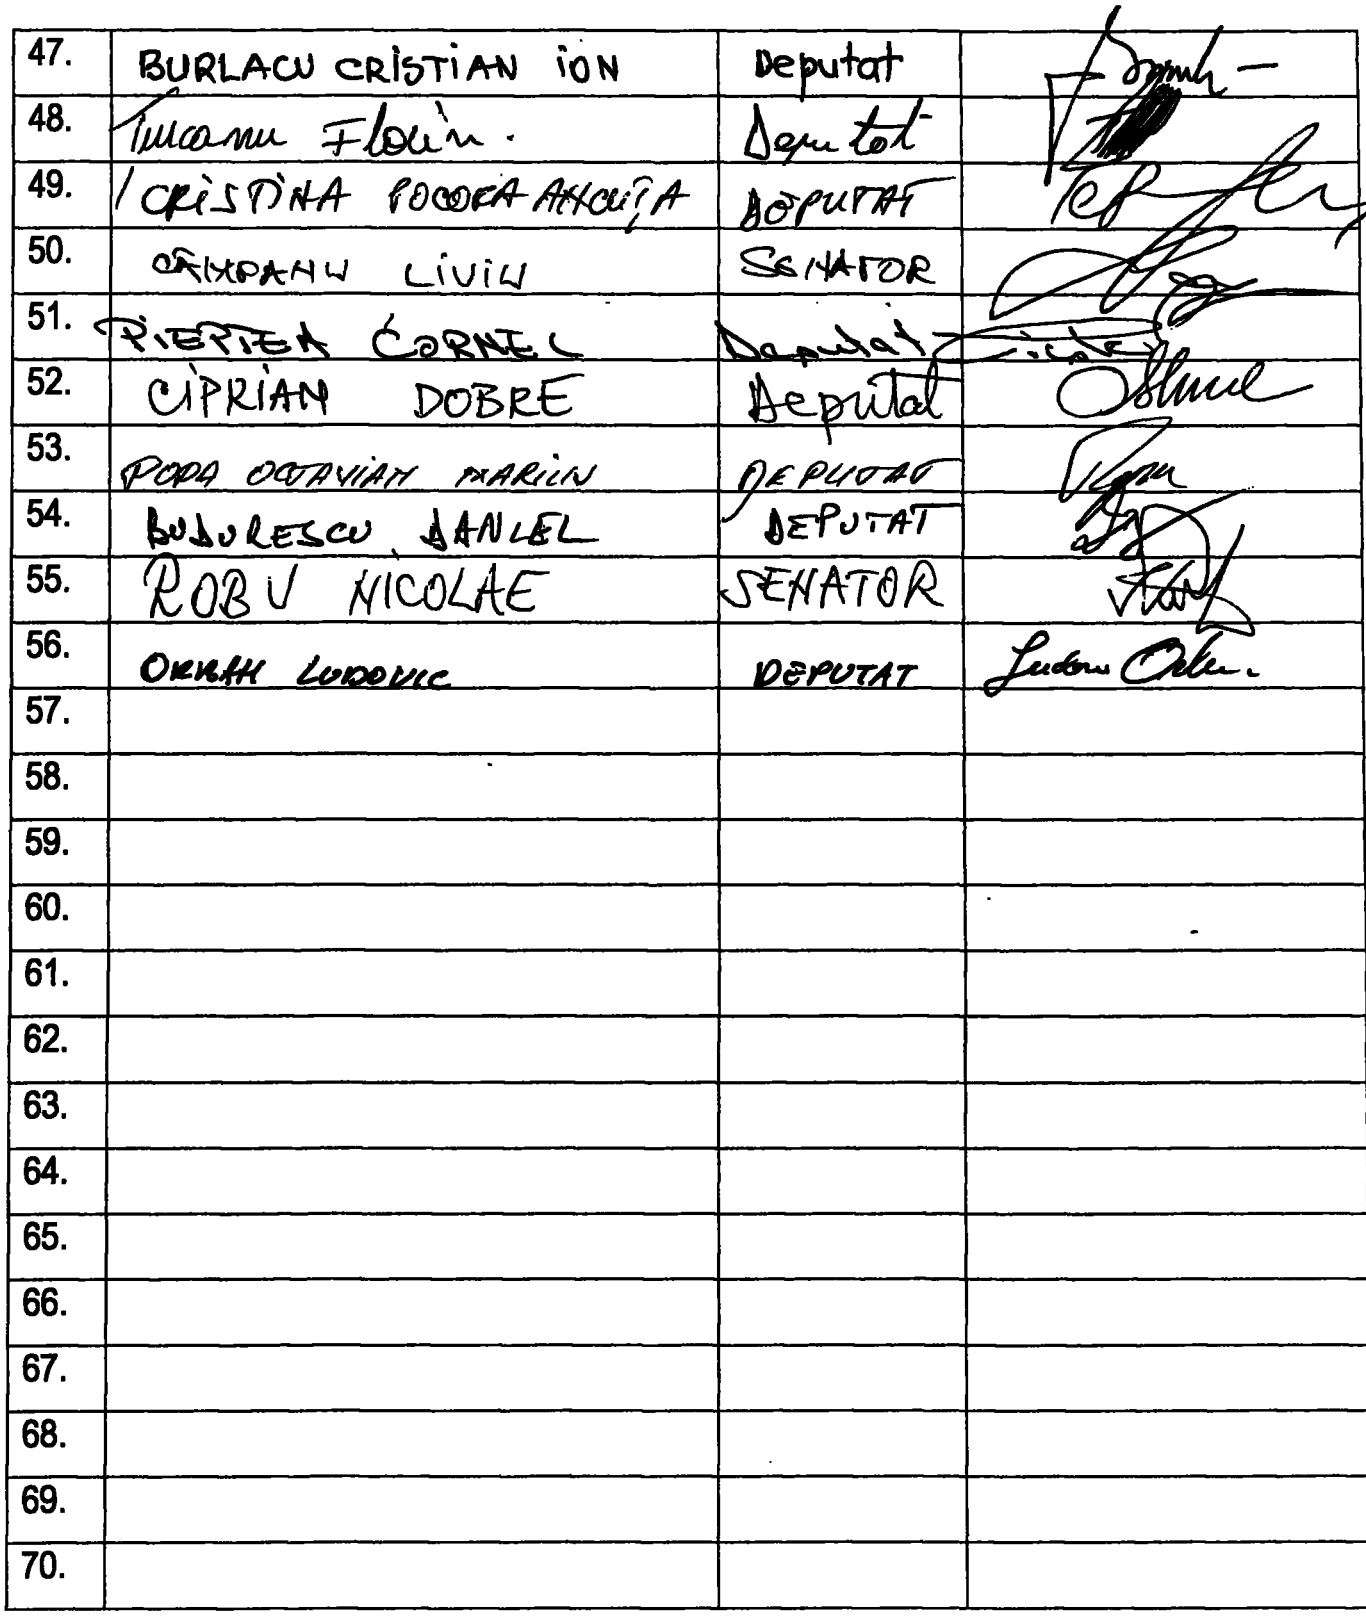 47. BURLACU CRISTIAN ION Deputat
48. Țurcanu Florin. Deputat
49. CRISTINA POCORA ANCUȚA DEPUTAT
50. CÂMPANU LIVIU SENATOR
51. PIEPTEA CORNEL Deputat
52. CIPRIAN DOBRE Deputat
53. POPA OCTAVIAN MARIUS DEPUTAT
54. BUDURESCU DANIEL DEPUTAT
55. ROBU NICOLAE SENATOR
56. ORBAN LUDOVIC DEPUTAT Ludovic Orban
57.
58.
59.
60.
61.
62.
63.
64.
65.
66.
67.
68.
69.
70.